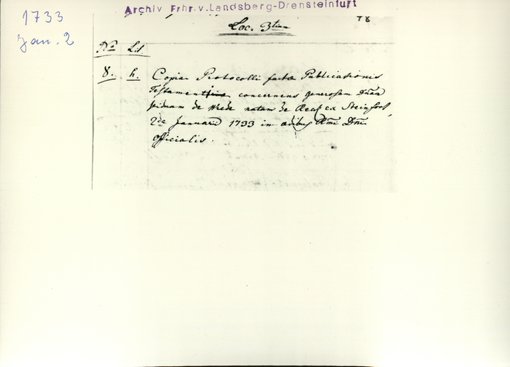 1733
Jan. 2
Archiv Frhr.v.Landsberg-Drensteinfurt
Loc. 3tius
No Lit
8. h. Copia Protocolli factae Publicationis
Testamenti concernens generosam Dnam
viduam de Wrede natam de Reck ex Steinfort
2da Januarii 1733 in aedibus Dni
officialis.